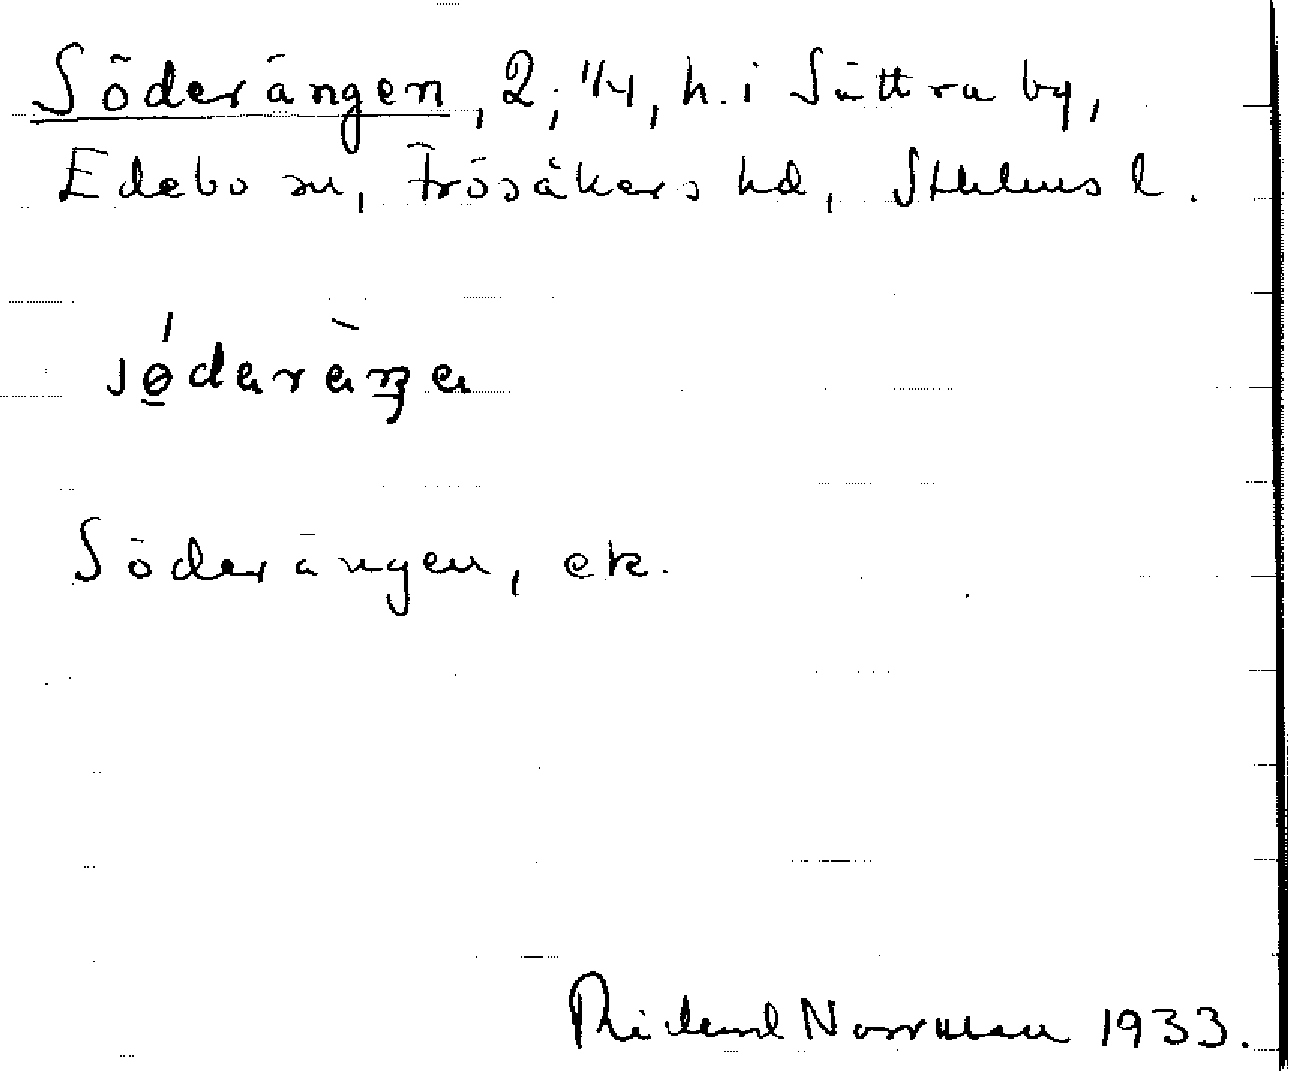 Söderängen, 2; 1/4, h. i Sättra by,
Edebo sn, Frösåkers hd, Sthlms l.
Söderängen, etc.
Rickard Norrman 1933.